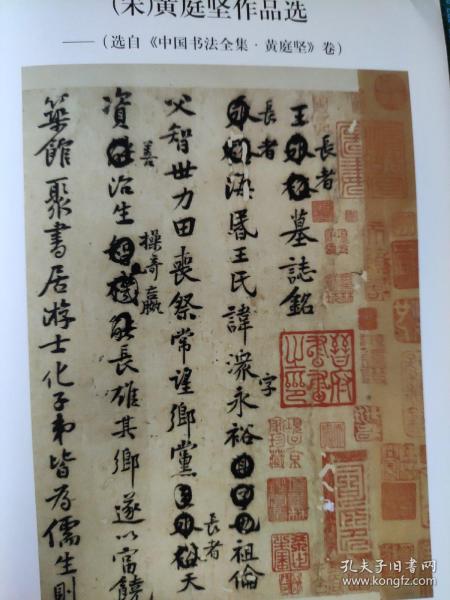 (宋)黄庭坚作品选
——(选自《中国书法全集·黄庭坚》卷)
王長者墓誌銘
長者海昏王氏諱字永裕祖倫
父智世力田喪祭常望鄉黨長者天
資善治生操奇贏能長雄其鄉遂以富饒
築館聚書居游士化子弟皆為儒生則
晉府書畫之印
孔夫子旧书网
www.kongfz.com